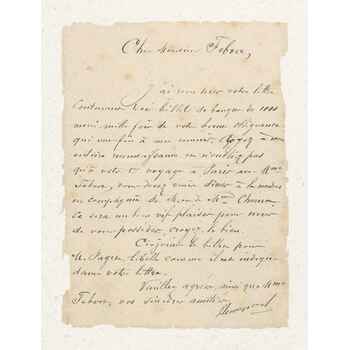 Cher Monsieur Febvre,
J'ai reçu hier votre lettre
contenant les billets de banque de 1000
merci mille fois de votre bonne obligeance
qui met fin à une ennui, croyez à ma
entière reconnaissance, n'oubliez pas
qu'à votre voyage à Paris avec Mme
Febvre, vous devez venir dîner à la maison
en compagnie de M. et Mme
ce sera un bien vif plaisir pour nous
de vous posséder, croyez le bien.
Ci-joint le billet pour
M. libellé comme il est indiqué
dans votre lettre.
Veuillez agréer, ainsi que Mme
Febvre, nos sincères amitiés